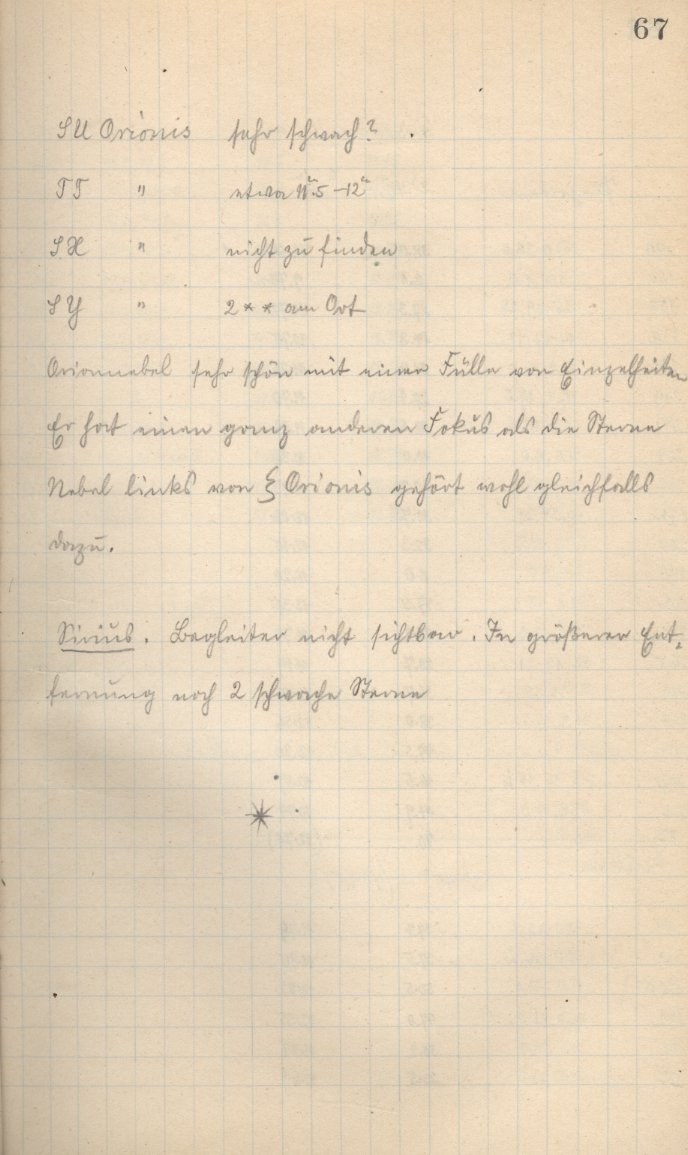 67
SU Orionis sehr schwach?
TT " etwa 11ᵐ.5 – 12ᵐ
SX " nicht zu finden
SY " 2 * * am Ort
Orionnebel sehr schön mit einer Fülle von Einzelheiten
Er hat einen ganz anderen Fokus als die Sterne
Nebel links von ξ Orionis gehört wohl gleichfalls
dazu.
Sirius. Begleiter nicht sichtbar. In größerer Ent-
fernung noch 2 schwache Sterne